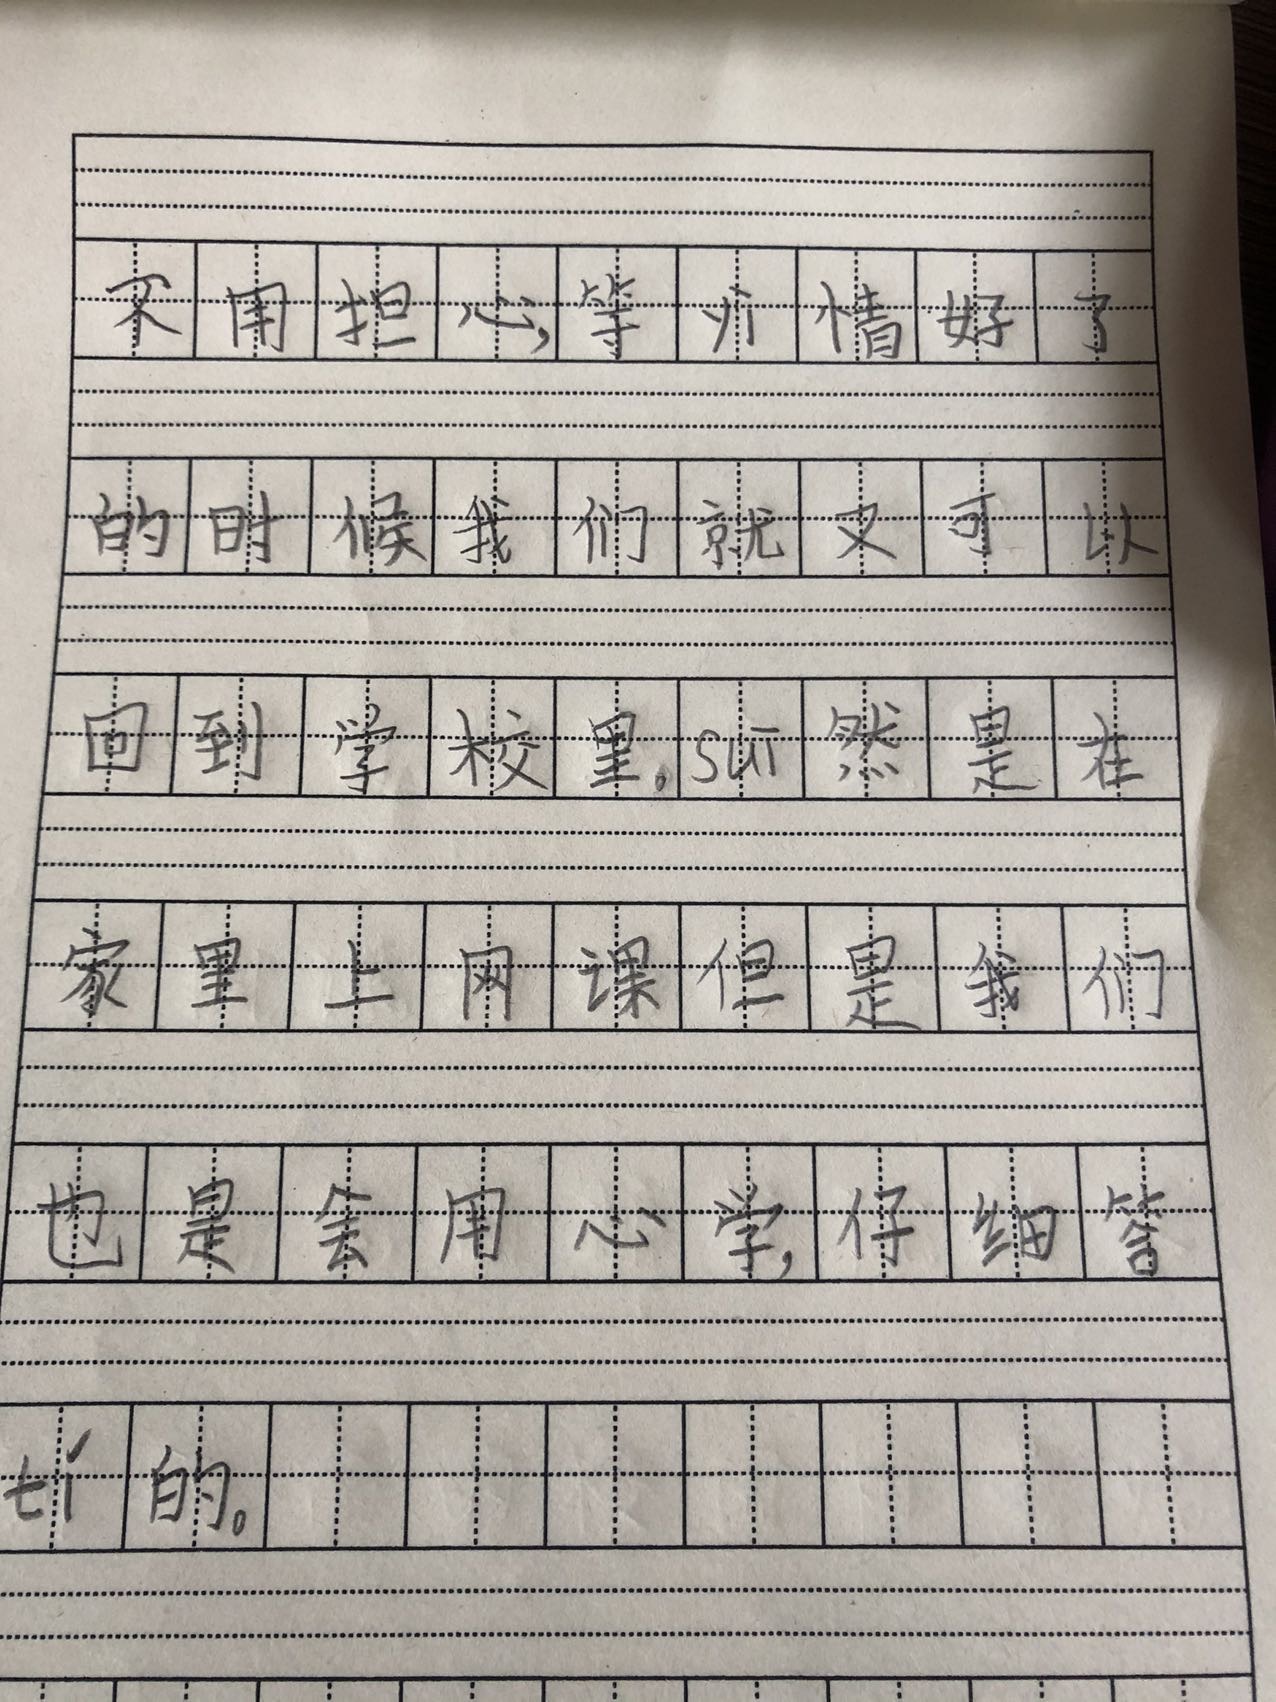 不用担心,等疒情好了
的时候我们就又可以
回到学校里。sūī然是在
家里上网课但是我们
也是会用心学,仔细答
tí的。